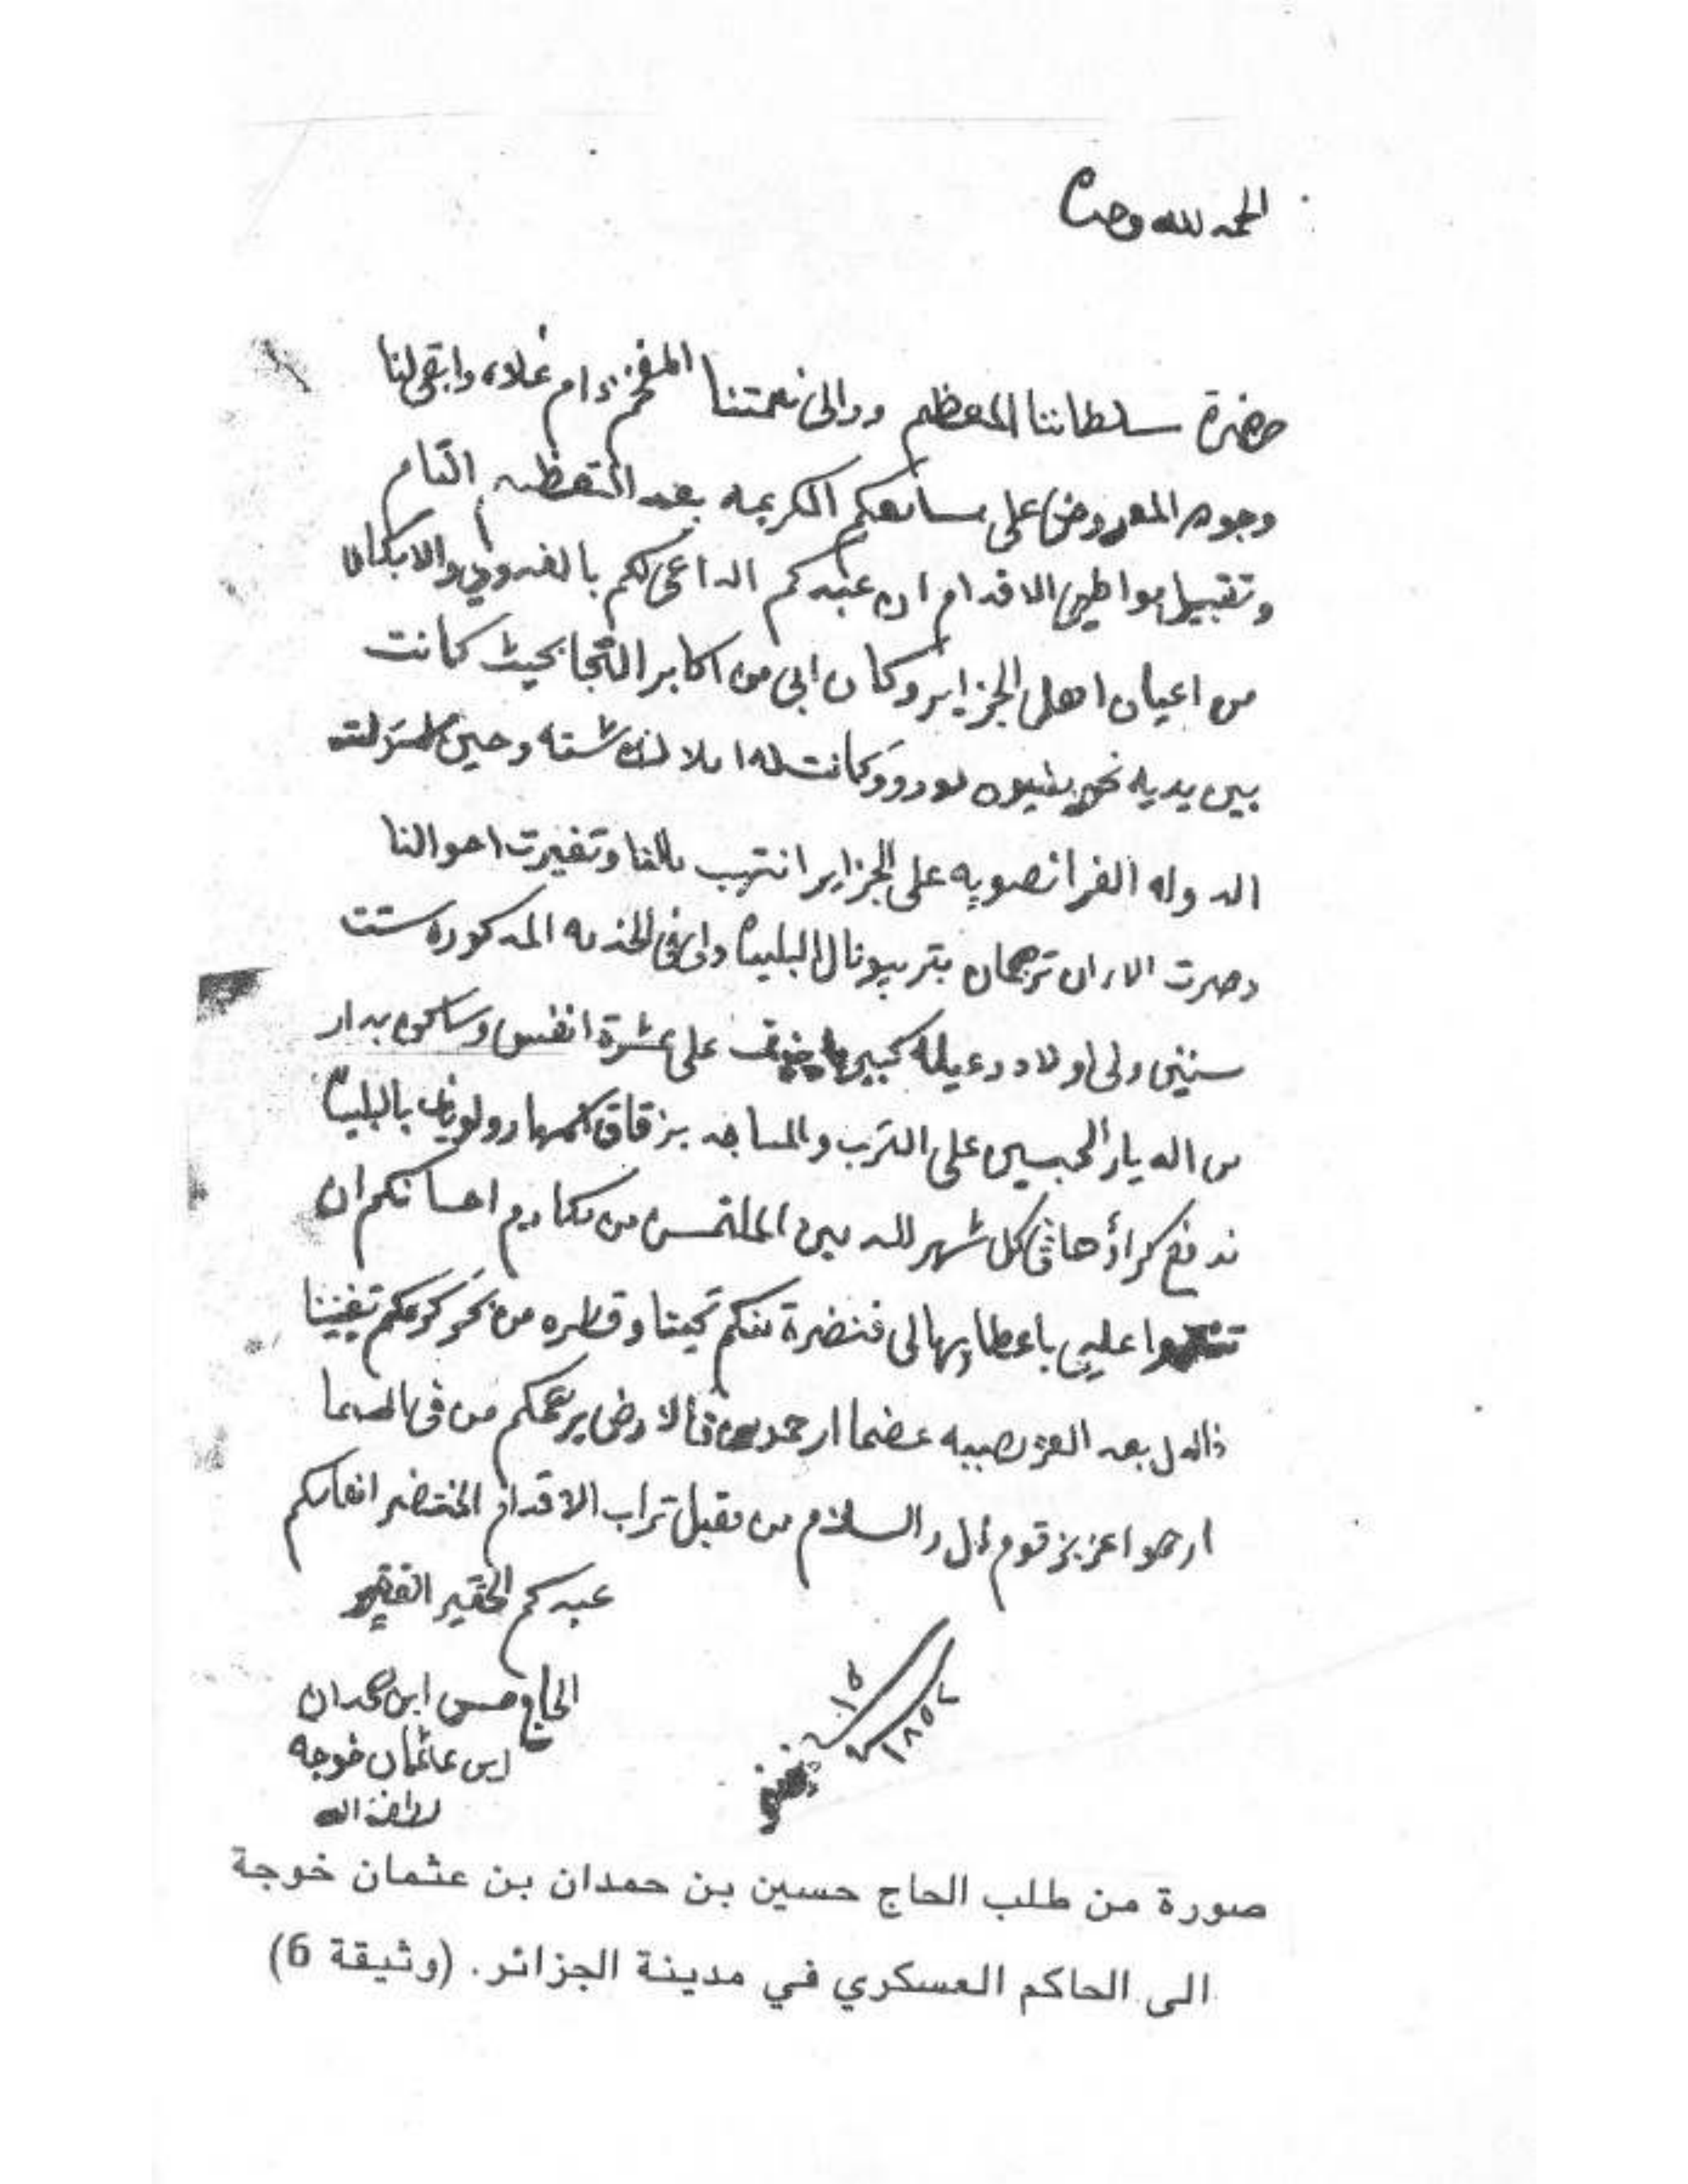 الحمد لله وحده
حضرة سلطاننا المعظم ووالى نعمتنا المفخم دام علاه وابقى لنا
وجوده المعروض على مسامعكم الكريمه بعد التعظيم التام
وتقبيل مواطى الاقدام ان عبدكم الداعى لكم بالغدو والابكار
من اعيان اهل الجزاير وكان ابى من اكابر التجا بحيث كانت
بين يديه نحو وكانت له املاك شته وحين
الدوله الفرانصويه على الجزاير وتغيرت احوالنا
وصرت الاان ترجمان بتريبونال البليده ولى فى الخدمه المذكوره ست
سنين ولى اولاد وعيله كبيره على عشرة انفس وساكن بدار
من الديار الحبس على الترب والمساجد بزقاق بالبليده
ندفع كراؤها فى كل شهر الملتمس من مكارم احسانكم ان
عليى باعطايها لى فنضرة منكم وقطره من بحر كرمكم تغنينا
ذالذل بعد العز مصيبه عضما ارحمو من فى الارض يرحمكم من فى السما
ارحموا عزيز قوم ذل والسلام من مقبل تراب الاقدام
عبدكم الحقير الفقير
الحاج حسن ابن حمدان
ابن عاثمان خوجه
لطف الله
١٥
١٨٥٢
صورة من طلب الحاج حسين بن حمدان بن عثمان خوجة
الى الحاكم العسكري في مدينة الجزائر. (وثيقة 6)